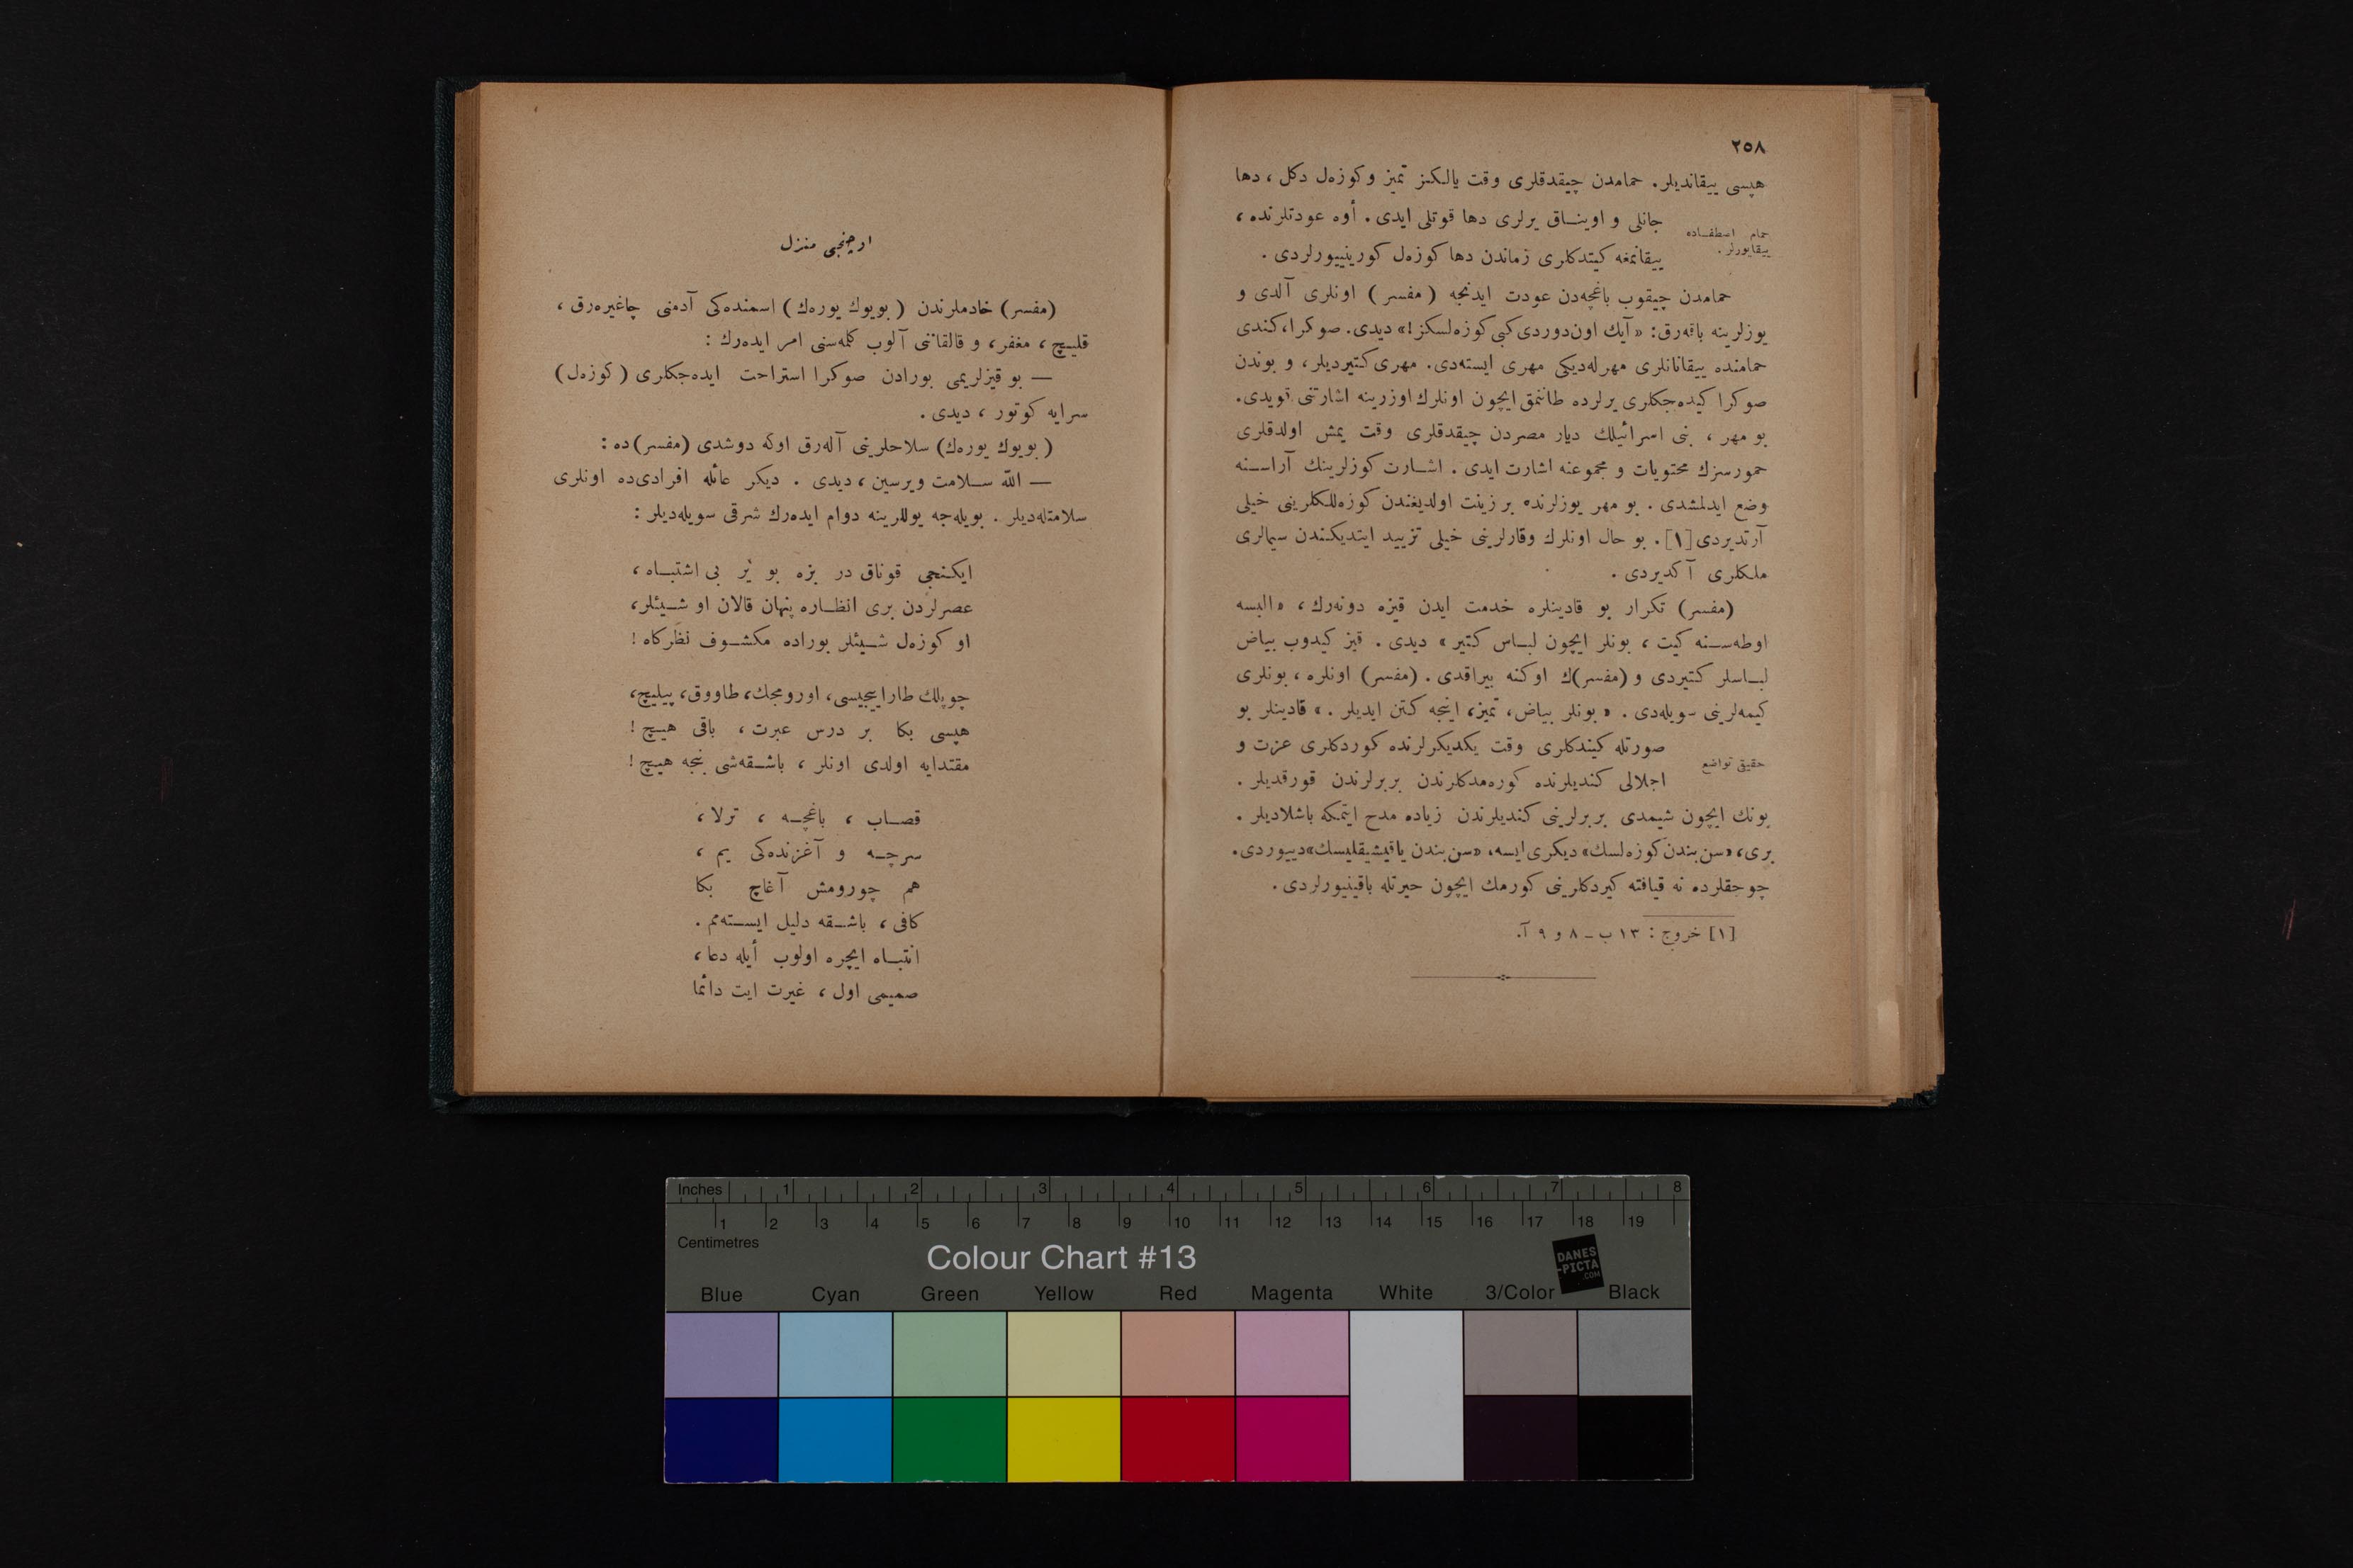 ٢٥٨
هپسی ییقاندیلر. حمامدن چیقدقلری وقت یالکز تمیز و کوزه‌ل دکل ، دها
جانلی و اوینـاق یرلری دها قوتلی ایدی . أوه عودتلرنده ،
حمام اصطفـاده
ییقایورلر .
ییقانمغه کیتدکلری زماندن دها کوزه‌ل کورینییورلردی .
حمامدن چیقوب باغچه‌دن عودت ایدنجه ( مفسر ) اونلری آلدی و
یوزلرینه باقه‌رق: « آیك اون‌دوردی کبی کوزه‌لسکز !» دیدی. صوکرا، کندی
حمامنده ییقانانلری مهرله‌دیکی مهری ایسته‌دی. مهری کتیردیلر، و بوندن
صوکرا کیده‌جکلری یرلرده طانغق ایچون اونلرك اوزرینه اشارتنی قویدی.
بو مهر ، بنی اسرائیلك دیار مصردن چیقدقلری وقت یمش اولدقلری
حمورسزك محتویات و مجموعنه اشارت ایدی . اشـارت کوزلرینك آراسـنه
وضع ایدلمشدی . بو مهر یوزلرنده بر زینت اولدیغندن کوزه‌للکلرینی خیلی
آرتدیردی[١]. بو حال اونلرك وقارلرینی خیلی تزیید ایتدیکندن سیمالری
ملکلری آکدیردی .
(مفسر) تکرار بو قادینلره خدمت ایدن قیزه دونه‌رك، « البسه
اوطه‌سـنه کیت ، بونلر ایچون لبـاس کتیر » دیدی . قیز کیدوب بیاض
لبـاسلر کتیردی و (مفسر)ك اوکنه بیراقدی . (مفسر) اونلره ، بونلری
کیمه‌لرینی سویله‌دی . « بونلر بیاض، تمیز، اینجه کتن ایدیلر . » قادینلر بو
صورتله کیندکلری وقت یکدیکرلرنده کوردکلری عزت و
حقیقی تواضع
اجلالی کندیلرنده کوره‌مدکلرندن بربرلرندن قورقدیلر .
بونك ایچون شیمدی بربرلرینی کندیلرندن زیاده مدح ایتمکه باشلادیلر .
بری، «سن بندن کوزه‌لسك» دیکری ایسه، «سن بندن یاقیشیقلیسك» دییوردی.
چوجقلرده نه قیافته کیردکلرینی کورمك ایچون حیرتله باقینیورلردی .
[١] خروج : ١٣ ب ـ ٨ و ٩ آ.
اوچنجی منزل
(مفسر) خادملرندن (بویوك یوره‌ك) اسمنده‌کی آدمنی چاغیره‌رق ،
قلیـچ ، مغفر، و قالقاننی آلوب کلمه‌سنی امر ایده‌رك :
— بو قیزلریمی بورادن صوکرا استراحت ایده‌جکلری (کوزه‌ل)
سرایه کوتور ، دیدی .
(بویوك یوره‌ك) سلاحلرینی آله‌رق اوکه دوشدی (مفسر)ده :
— اللّه سـلامت ویرسین ، دیدی . دیکر عائله افرادی‌ده اونلری
سلامتله‌دیلر . بویله‌جه یوللرینه دوام ایده‌رك شرقی سویله‌دیلر :
ایکـنجی قوناق در بزه بو یَر بی اشتبـاه ،
عصرلردن بری انظـاره پنهان قالان او شـیئلر،
او کوزه‌ل شـیئلر بوراده مکشـوف نظرکاه !
چوپلك طاراییجیسی، اورومجك، طاووق، پیلیچ،
هپسی بکا بر درس عبرت ، باقی هیـچ !
مقتدایه اولدی اونلر ، باشـقه‌شی بنجه هیچ !
قصـاب ، باغچـه ، ترلا ،
سرچـه و آغزنده‌کی یم ،
هم چورومش آغاچ بکا
کافی ، باشـقه دلیل ایسـته‌مم .
انتبـاه ایچره اولوب أیله دعا ،
صمیمی اول ، غیرت ایت دائما
Inches 1 2 3 4 5 6 7 8
1 2 3 4 5 6 7 8 9 10 11 12 13 14 15 16 17 18 19
Centimetres
Colour Chart #13
DANES
-PICTA
.COM
Blue Cyan Green Yellow Red Magenta White 3/Color Black